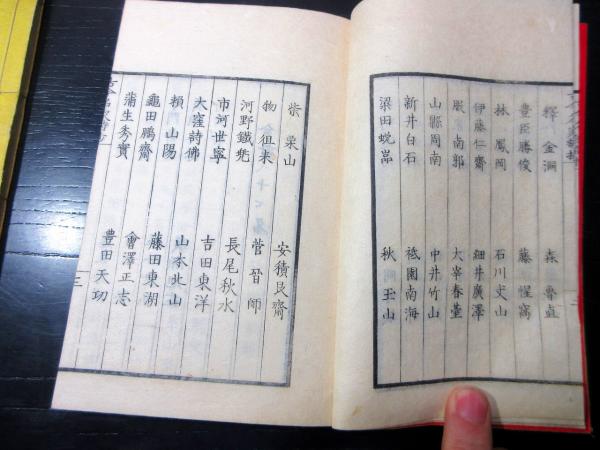 釋 金洞 森魯直
豊臣勝俊 藤惺窩
林鳳岡 石川丈山
伊藤仁齋 細井廣澤
服南郭 大宰春臺
山縣周南 中井竹山
新井白石 祗園南海
梁田蛻巖 秋玉山
柴栗山 安積艮齋
物徂來 菅晉師
河野鐵兜 長尾秋水
市河世寧 吉田東洋
大窪詩佛 山本北山
賴山陽 藤田東湖
龜田鵬齋 會澤正志
蒲生秀實 豊田天功
三